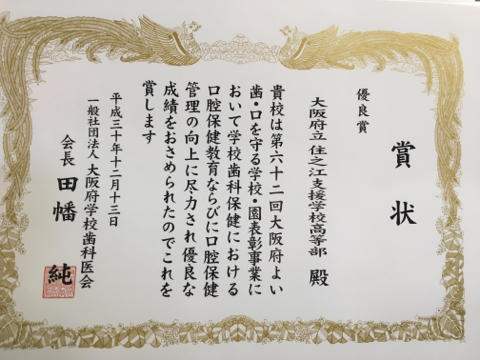 賞状
優良賞
大阪府立住之江支援学校高等部 殿
貴校は第六十二回大阪府よい
歯・口を守る学校・園表彰事業に
おいて学校歯科保健における
口腔保健教育ならびに口腔保健
管理の向上に尽力され優良な
成績をおさめられたのでこれを
賞します
平成三十年十二月十三日
一般社団法人 大阪府学校歯科医会
会長 田幡 純